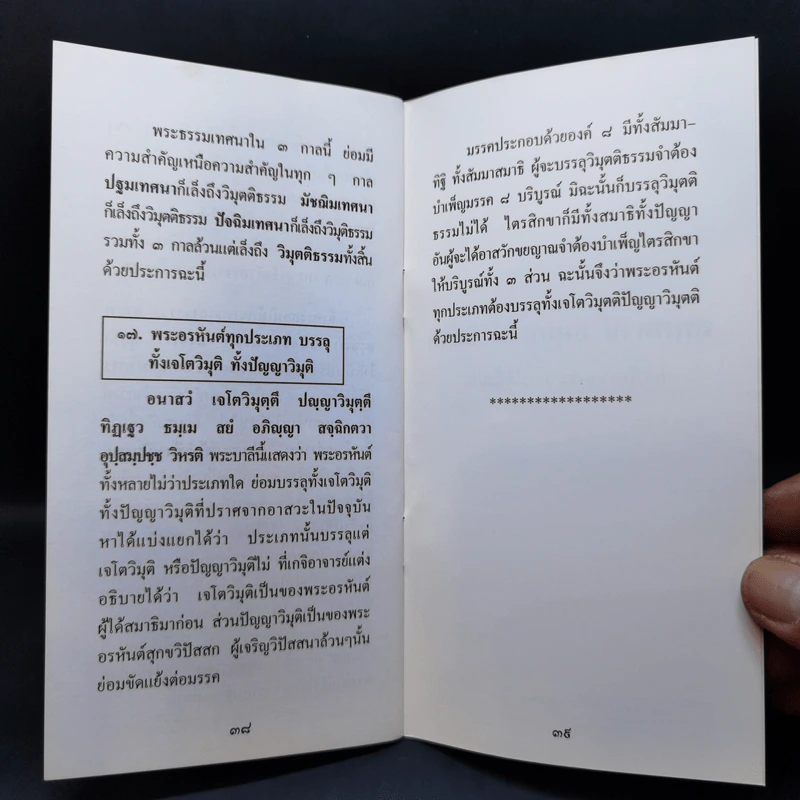 พระธรรมเทศนาใน ๓ กาลนี้ ย่อมมี
ความสำคัญเหนือความสำคัญในทุก ๆ กาล
ปฐมเทศนาก็เล็งถึงวิมุตติธรรม มัชฌิมเทศนา
ก็เล็งถึงวิมุตติธรรม ปัจฉิมเทศนาก็เล็งถึงวิมุตติธรรม
รวมทั้ง ๓ กาลล้วนแต่เล็งถึง วิมุตติธรรมทั้งสิ้น
ด้วยประการฉะนี้
๑๗. พระอรหันต์ทุกประเภท บรรลุ
ทั้งเจโตวิมุติ ทั้งปัญญาวิมุติ
อนาสวํ เจโตวิมุตฺตึ ปญฺญาวิมุตฺตึ
ทิฏฺเฐว ธมฺเม สยํ อภิญฺญา สจฺฉิกตวา
อุปฺสมฺปชฺช วิหรติ พระบาลีนี้แสดงว่า พระอรหันต์
ทั้งหลายไม่ว่าประเภทใด ย่อมบรรลุทั้งเจโตวิมุติ
ทั้งปัญญาวิมุติที่ปราศจากอาสวะในปัจจุบัน
หาได้แบ่งแยกได้ว่า ประเภทนั้นบรรลุแต่
เจโตวิมุติ หรือปัญญาวิมุติไม่ ที่เกจิอาจารย์แต่ง
อธิบายได้ว่า เจโตวิมุติเป็นของพระอรหันต์
ผู้ได้สมาธิมาก่อน ส่วนปัญญาวิมุติเป็นของพระ
อรหันต์สุกขวิปัสสก ผู้เจริญวิปัสสนาล้วนๆนั้น
ย่อมขัดแย้งต่อมรรค
๓๘
มรรคประกอบด้วยองค์ ๘ มีทั้งสัมมา–
ทิฐิ ทั้งสัมมาสมาธิ ผู้จะบรรลุวิมุตติธรรมจำต้อง
บำเพ็ญมรรค ๘ บริบูรณ์ มิฉะนั้นก็บรรลุวิมุตติ
ธรรมไม่ได้ ไตรสิกขาก็มีทั้งสมาธิทั้งปัญญา
อันผู้จะได้อาสวักขยญาณจำต้องบำเพ็ญไตรสิกขา
ให้บริบูรณ์ทั้ง ๓ ส่วน ฉะนั้นจึงว่าพระอรหันต์
ทุกประเภทต้องบรรลุทั้งเจโตวิมุตติปัญญาวิมุตติ
ด้วยประการฉะนี้
*******************
๓๙